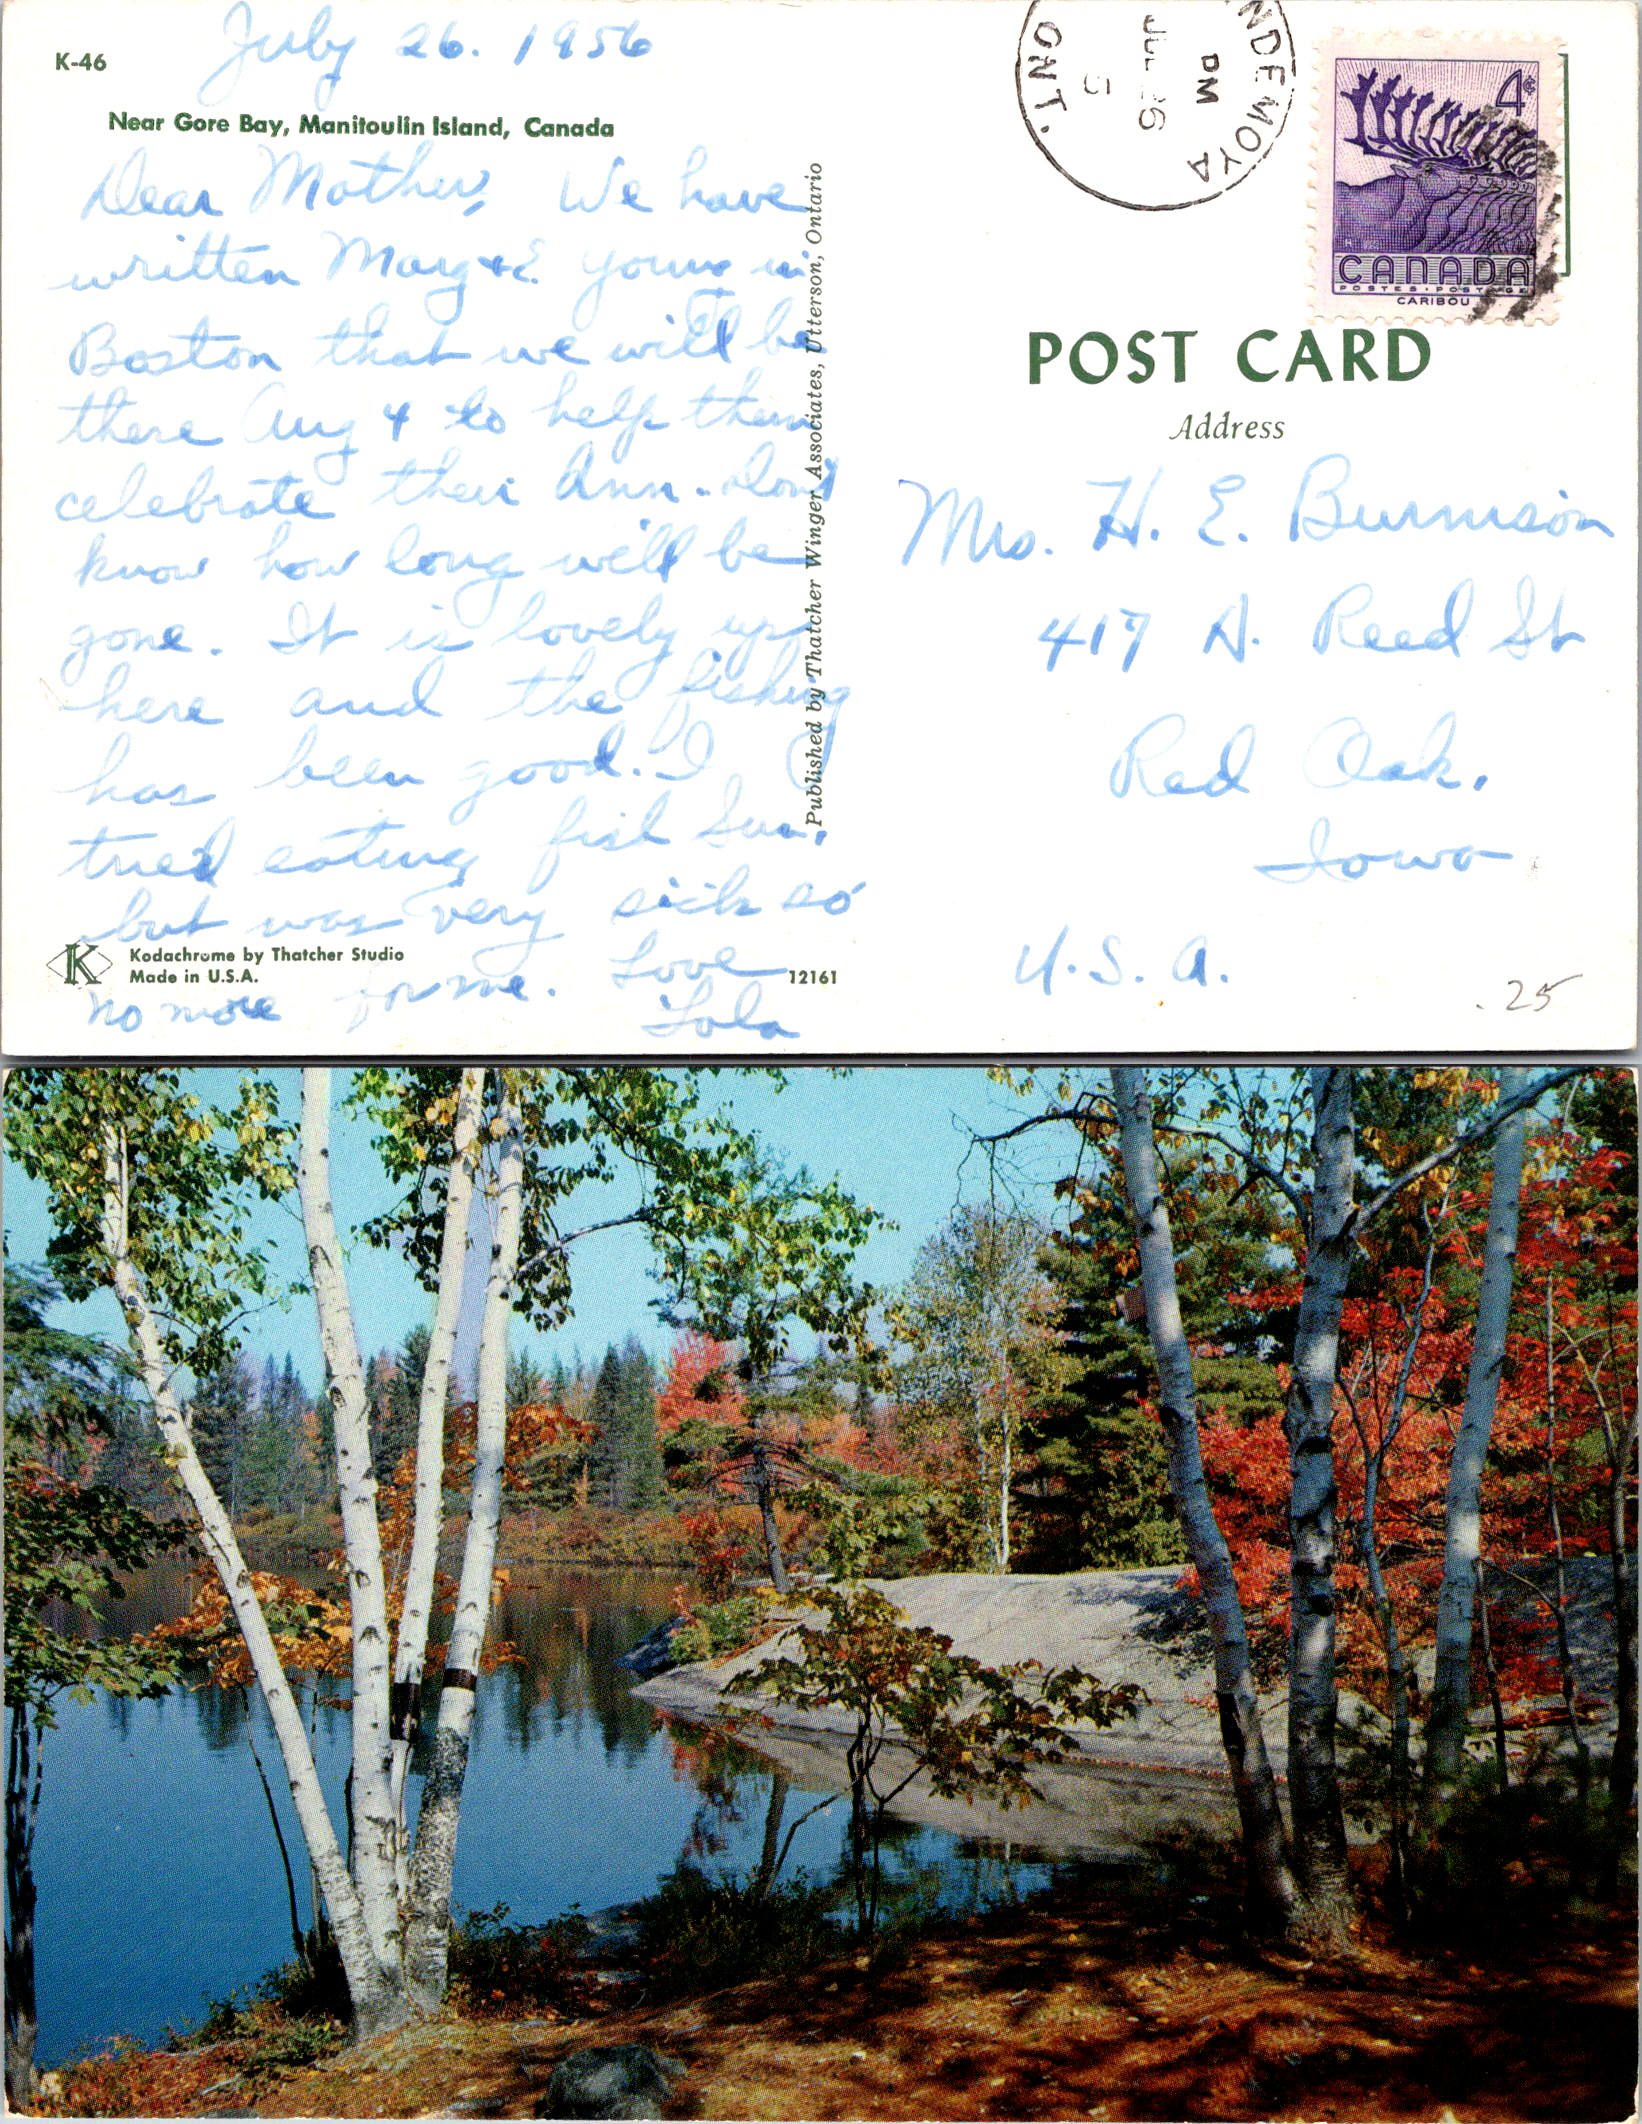 K-46
July 26. 1956
Near Gore Bay, Manitoulin Island, Canada
Dear Mother, We have
written Marg & E. yours in
Boston that we will be
there Aug 4 to help them
celebrate their Ann. - don't
know how long will be
gone. It is lovely up
here and the fishing
has been good. I
tried eating fish Sun.
but was very sick so
no more for me. Love
Lola
K
Kodachrome by Thatcher Studio
Made in U.S.A.
12161
Published by Thatcher Winger Associates, Utterson, Ontario
NDEMOYA
PM
JUL 26
5
ONT.
4¢
CANADA
POSTES · POSTAGE
CARIBOU
POST CARD
Address
Mrs. H. E. Burnison
417 N. Reed St
Red Oak.
Iowa
U.S.A.
.25